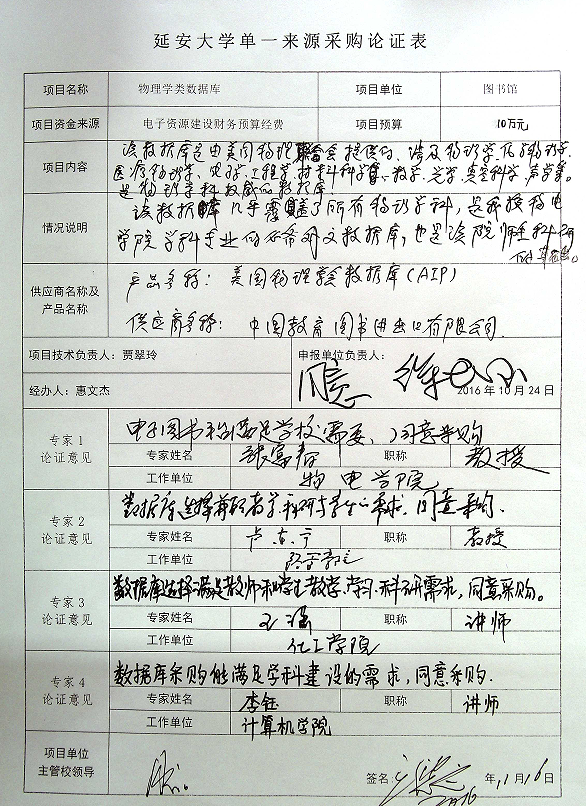 延安大学单一来源采购论证表
项目名称 物理学类数据库 项目单位 图书馆
项目资金来源 电子资源建设财务预算经费 项目预算 10万元
项目内容 该数据库是由美国物理联合会提供的、涉及物理学、化学物理学、
医疗物理学、电子工程学、材料科学、数学、光学、真空科学、声学等。
是物理学科权威的数据库
情况说明 该数据库几乎覆盖了所有物理学科,是我校物电
学院学科专业的外文数据库,也是该院师生科研
供应商名称及产品名称 产品名称:美国物理学会数据库(AIP)
供应商名称:中国教育图书进出口有限公司.
项目技术负责人:贾翠玲 申报单位负责人:
同意
经办人:惠文杰 2016年10月24日
专家1 论证意见 电子图书 满足学校需要、同意采购
专家姓名 张富春 职称 教授
工作单位 物电学院
专家2 论证意见 数据库选择 教学科研 需求,同意采购.
专家姓名 职称 教授
工作单位
专家3 论证意见 数据库选择满足教师和学生教学、学习、科研需求,同意采购。
专家姓名 王 职称 讲师
工作单位 化工学院
专家4 论证意见 数据库采购能满足学科建设的需求,同意采购.
专家姓名 李钰 职称 讲师
工作单位 计算机学院
项目单位主管校领导 签名 2016年11月16日